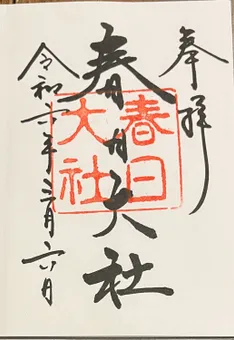 奉拝
春日大社
春日
大社
令和七年三月六日